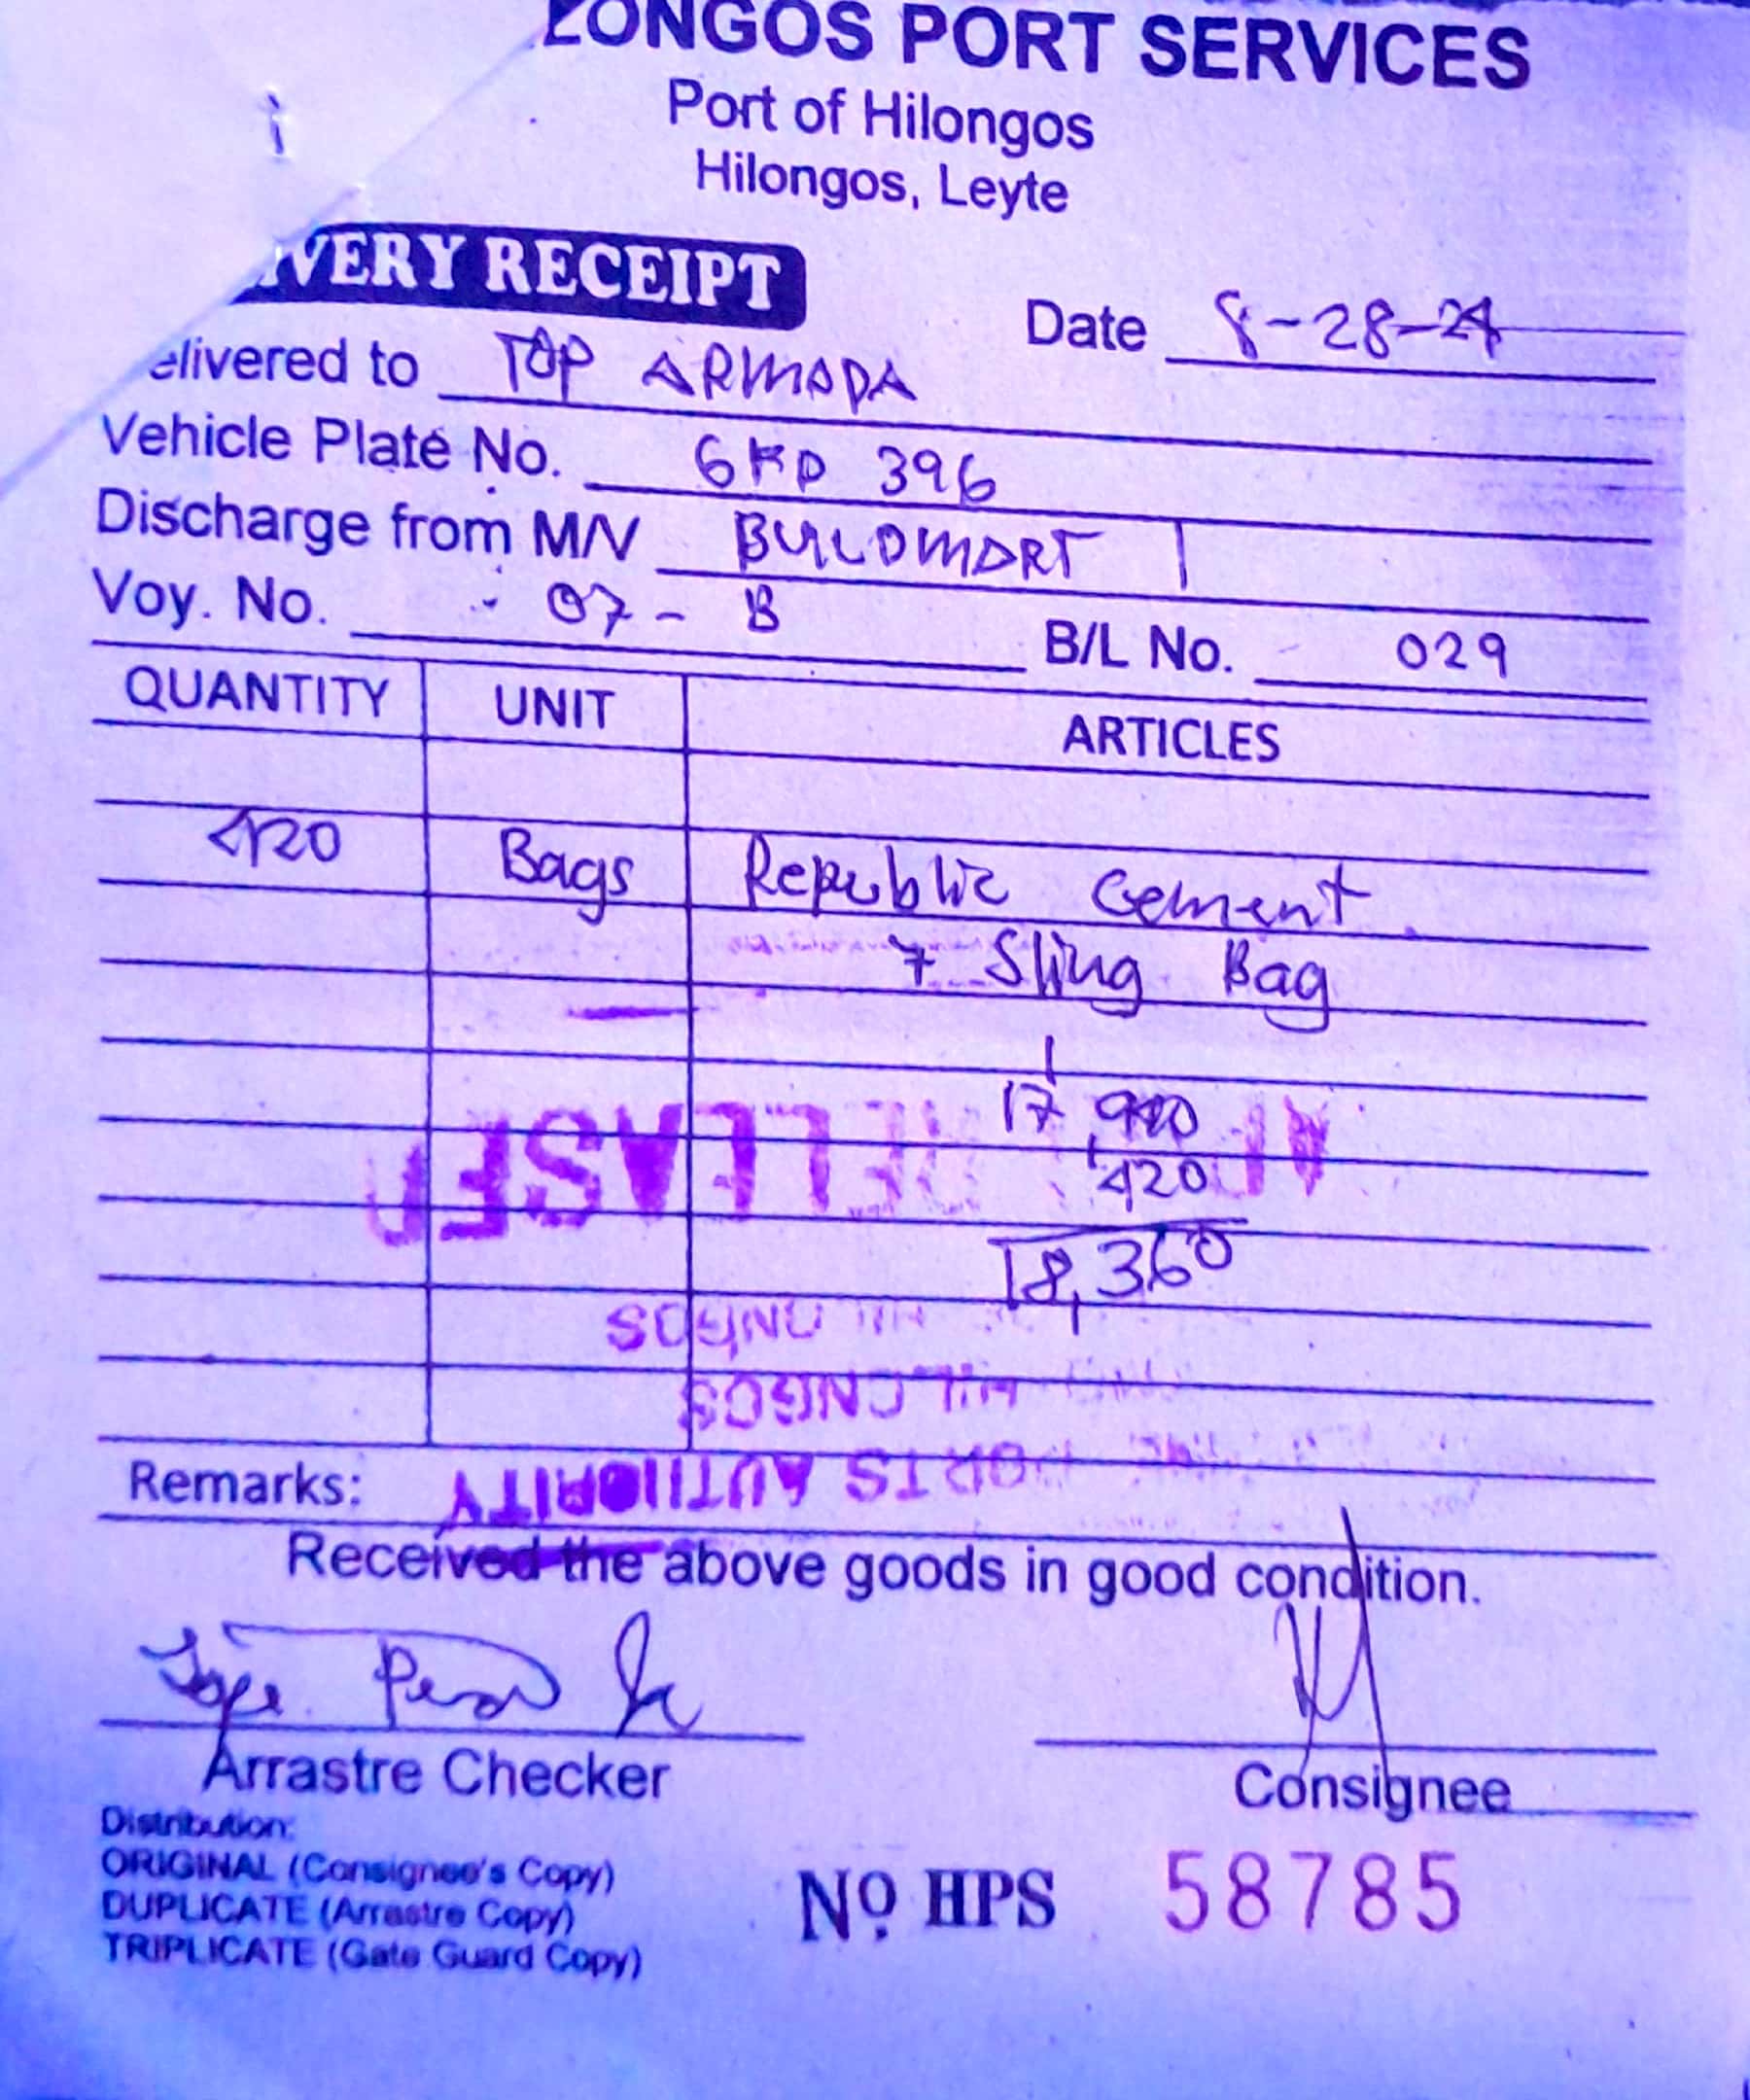 LONGOS PORT SERVICES
Port of Hilongos
Hilongos, Leyte
IVERY RECEIPT
Date 8-28-24
elivered to TOP ARMADA
Vehicle Plate No. GKD 396
Discharge from M/V BUILDMART 1
Voy. No. 07 - B B/L No. 029
QUANTITY UNIT ARTICLES
420 Bags Republic Cement
7 Sling Bag
17,940
420
18,360
RELEASED
HILONGOS
HILONGOS
PORTS AUTHORITY
Remarks:
Received the above goods in good condition.
Arrastre Checker
Consignee
Distribution:
ORIGINAL (Consignee's Copy)
DUPLICATE (Arrastre Copy)
TRIPLICATE (Gate Guard Copy)
Nº HPS 58785